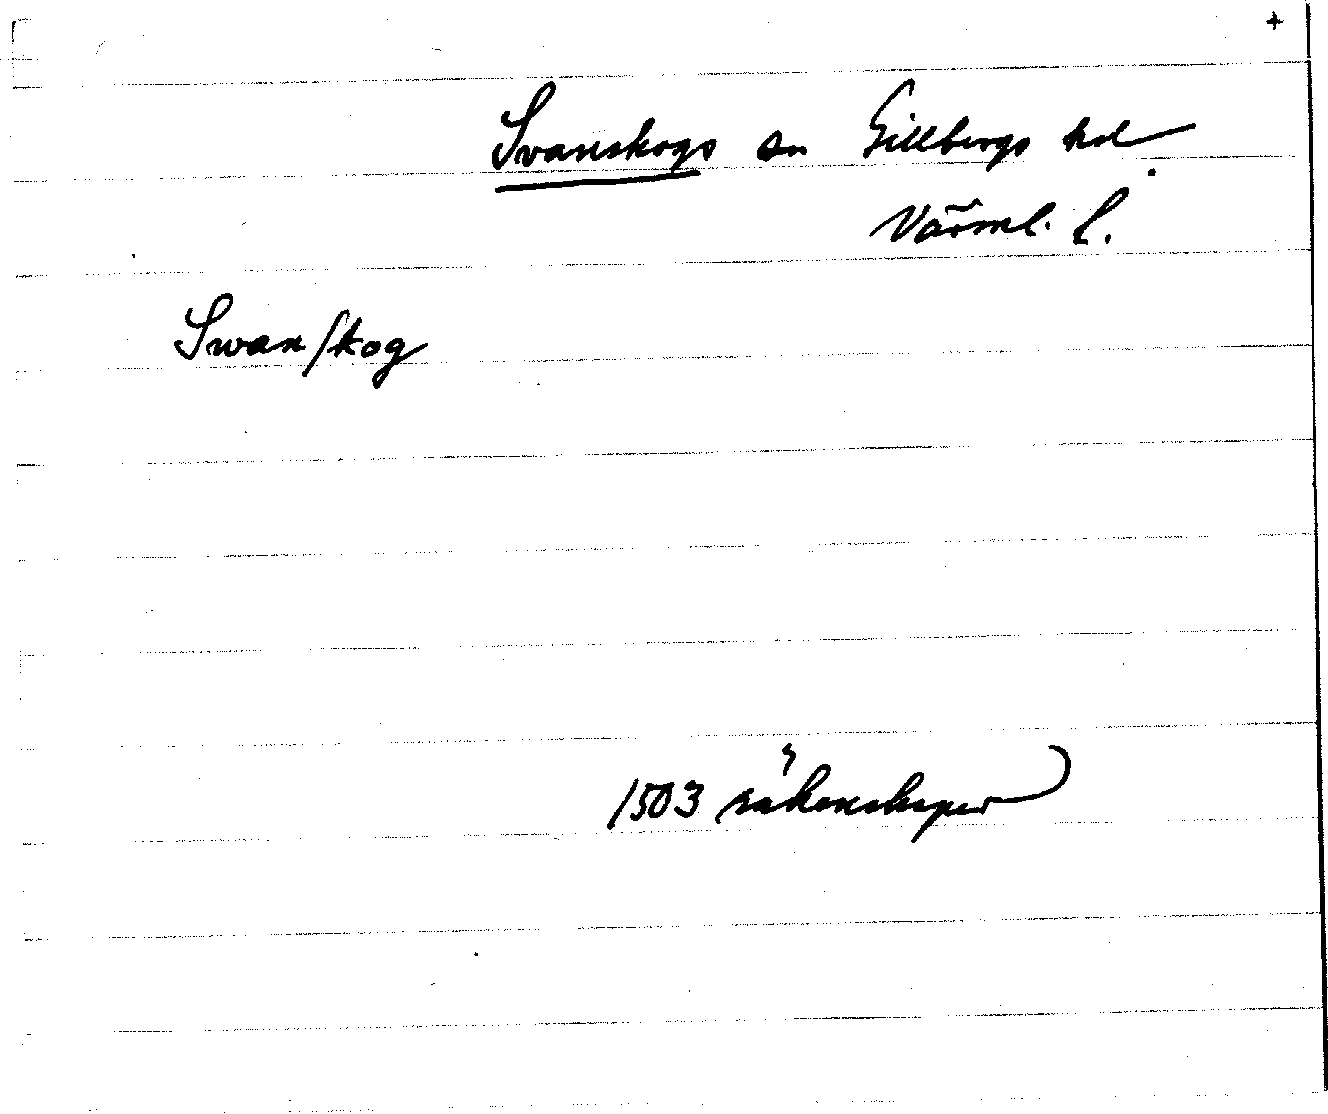 +
Svanskogs sn Gillbergs hd
Värml. l.
Swanſkog
1503 räkenskaper